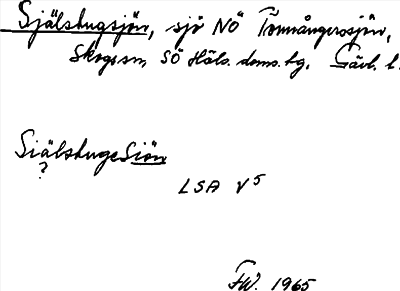 Själstugsjön, sjö NÖ Tönnångerssjön,
Skogssn, SÖ Häls. doms. tg. Gävl. l.
SiälstugeSiön
?
LSA V5
FW. 1965